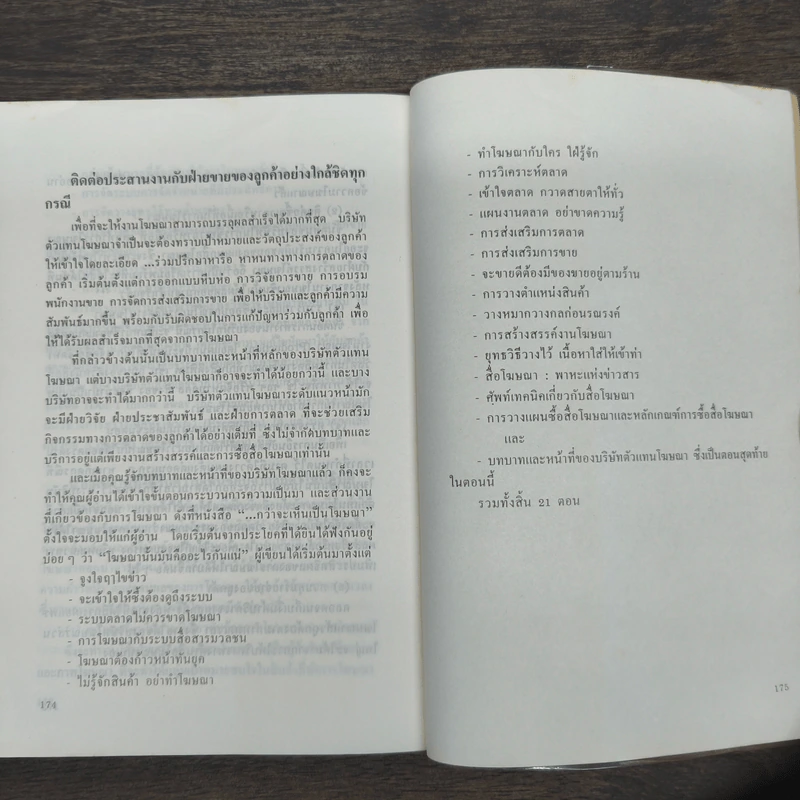 ติดต่อประสานงานกับฝ่ายขายของลูกค้าอย่างใกล้ชิดทุก
กรณี
เพื่อที่จะให้งานโฆษณาสามารถบรรลุผลสำเร็จได้มากที่สุด บริษัท
ตัวแทนโฆษณาจำเป็นจะต้องทราบเป้าหมายและวัตถุประสงค์ของลูกค้า
ให้เข้าใจโดยละเอียด ...ร่วมปรึกษาหารือ หาหนทางทางการตลาดของ
ลูกค้า เริ่มต้นตั้งแต่การออกแบบหีบห่อ การวิจัยการขาย การอบรม
พนักงานขาย การจัดการส่งเสริมการขาย เพื่อให้บริษัทและลูกค้ามีความ
สัมพันธ์มากขึ้น พร้อมกับรับผิดชอบในการแก้ปัญหาร่วมกับลูกค้า เพื่อ
ให้ได้รับผลสำเร็จมากที่สุดจากการโฆษณา
ที่กล่าวข้างต้นนั้นเป็นบทบาทและหน้าที่หลักของบริษัทตัวแทน
โฆษณา แต่บางบริษัทตัวแทนโฆษณาก็อาจจะทำได้น้อยกว่านี้ และบาง
บริษัทอาจจะทำได้มากกว่านี้ บริษัทตัวแทนโฆษณาระดับแนวหน้ามัก
จะมีฝ่ายวิจัย ฝ่ายประชาสัมพันธ์ และฝ่ายการตลาด ที่จะช่วยเสริม
กิจกรรมทางการตลาดของลูกค้าได้อย่างเต็มที่ ซึ่งไม่จำกัดบทบาทและ
บริการอยู่แต่เพียงงานสร้างสรรค์และการซื้อสื่อโฆษณาเท่านั้น
และเมื่อคุณรู้จักบทบาทและหน้าที่ของบริษัทโฆษณาแล้ว ก็คงจะ
ทำให้คุณผู้อ่านได้เข้าใจขั้นตอนกระบวนการความเป็นมา และส่วนงาน
ที่เกี่ยวข้องกับการโฆษณา ดังที่หนังสือ "...กว่าจะเห็นเป็นโฆษณา"
ตั้งใจจะมอบให้แก่ผู้อ่าน โดยเริ่มต้นจากประโยคที่ได้ยินได้ฟังกันอยู่
บ่อยๆ ว่า "โฆษณานั้นมันคืออะไรกันแน่" ผู้เขียนได้เริ่มต้นมาตั้งแต่
- จูงใจฤๅไขข่าว
- จะเข้าใจให้ซึ้งต้องดูถึงระบบ
- ระบบตลาดไม่ควรขาดโฆษณา
- การโฆษณากับระบบสื่อสารมวลชน
- โฆษณาต้องก้าวหน้าทันยุค
- ไม่รู้จักสินค้า อย่าทำโฆษณา
174
- ทำโฆษณากับใคร ใฝ่รู้จัก
- การวิเคราะห์ตลาด
- เข้าใจตลาด กวาดสายตาให้ทั่ว
- แผนงานตลาด อย่าขาดความรู้
- การส่งเสริมการตลาด
- การส่งเสริมการขาย
- จะขายดีต้องมีของขายอยู่ตามร้าน
- การวางตำแหน่งสินค้า
- วางหมากวางกลก่อนรณรงค์
- การสร้างสรรค์งานโฆษณา
- ยุทธวิธีวางไว้ เนื้อหาใส่ให้เข้าท่า
- สื่อโฆษณา : พาหะแห่งข่าวสาร
- ศัพท์เทคนิคเกี่ยวกับสื่อโฆษณา
- การวางแผนซื้อสื่อโฆษณาและหลักเกณฑ์การซื้อสื่อโฆษณา
และ
- บทบาทและหน้าที่ของบริษัทตัวแทนโฆษณา ซึ่งเป็นตอนสุดท้าย
ในตอนนี้
รวมทั้งสิ้น 21 ตอน
175